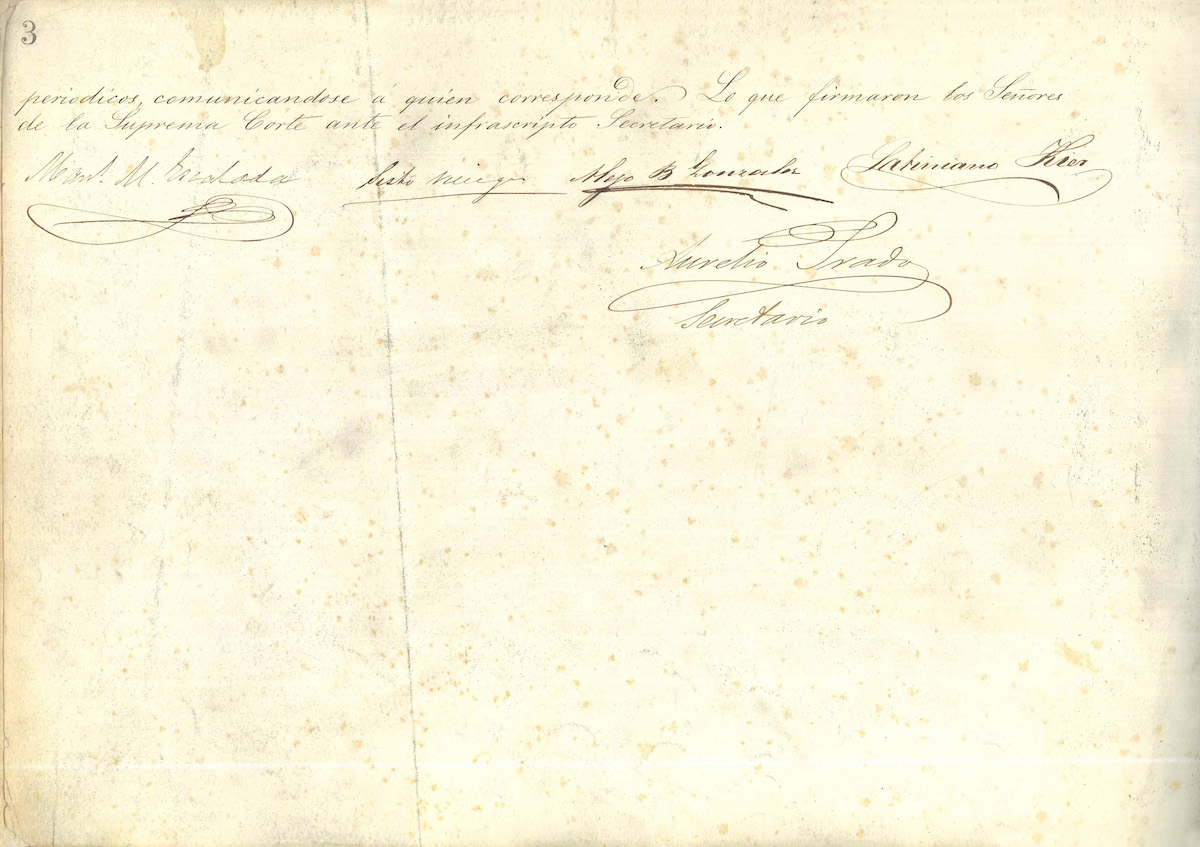 3
periodicos, comunicandose á quien corresponde. Lo que firmaron los Señores
de la Suprema Corte ante el infrascripto Secretario.
Manl. M. Escalada Sisto Alejo B Gonzalez Sabiniano Kier
Aurelio Prado
Secretario